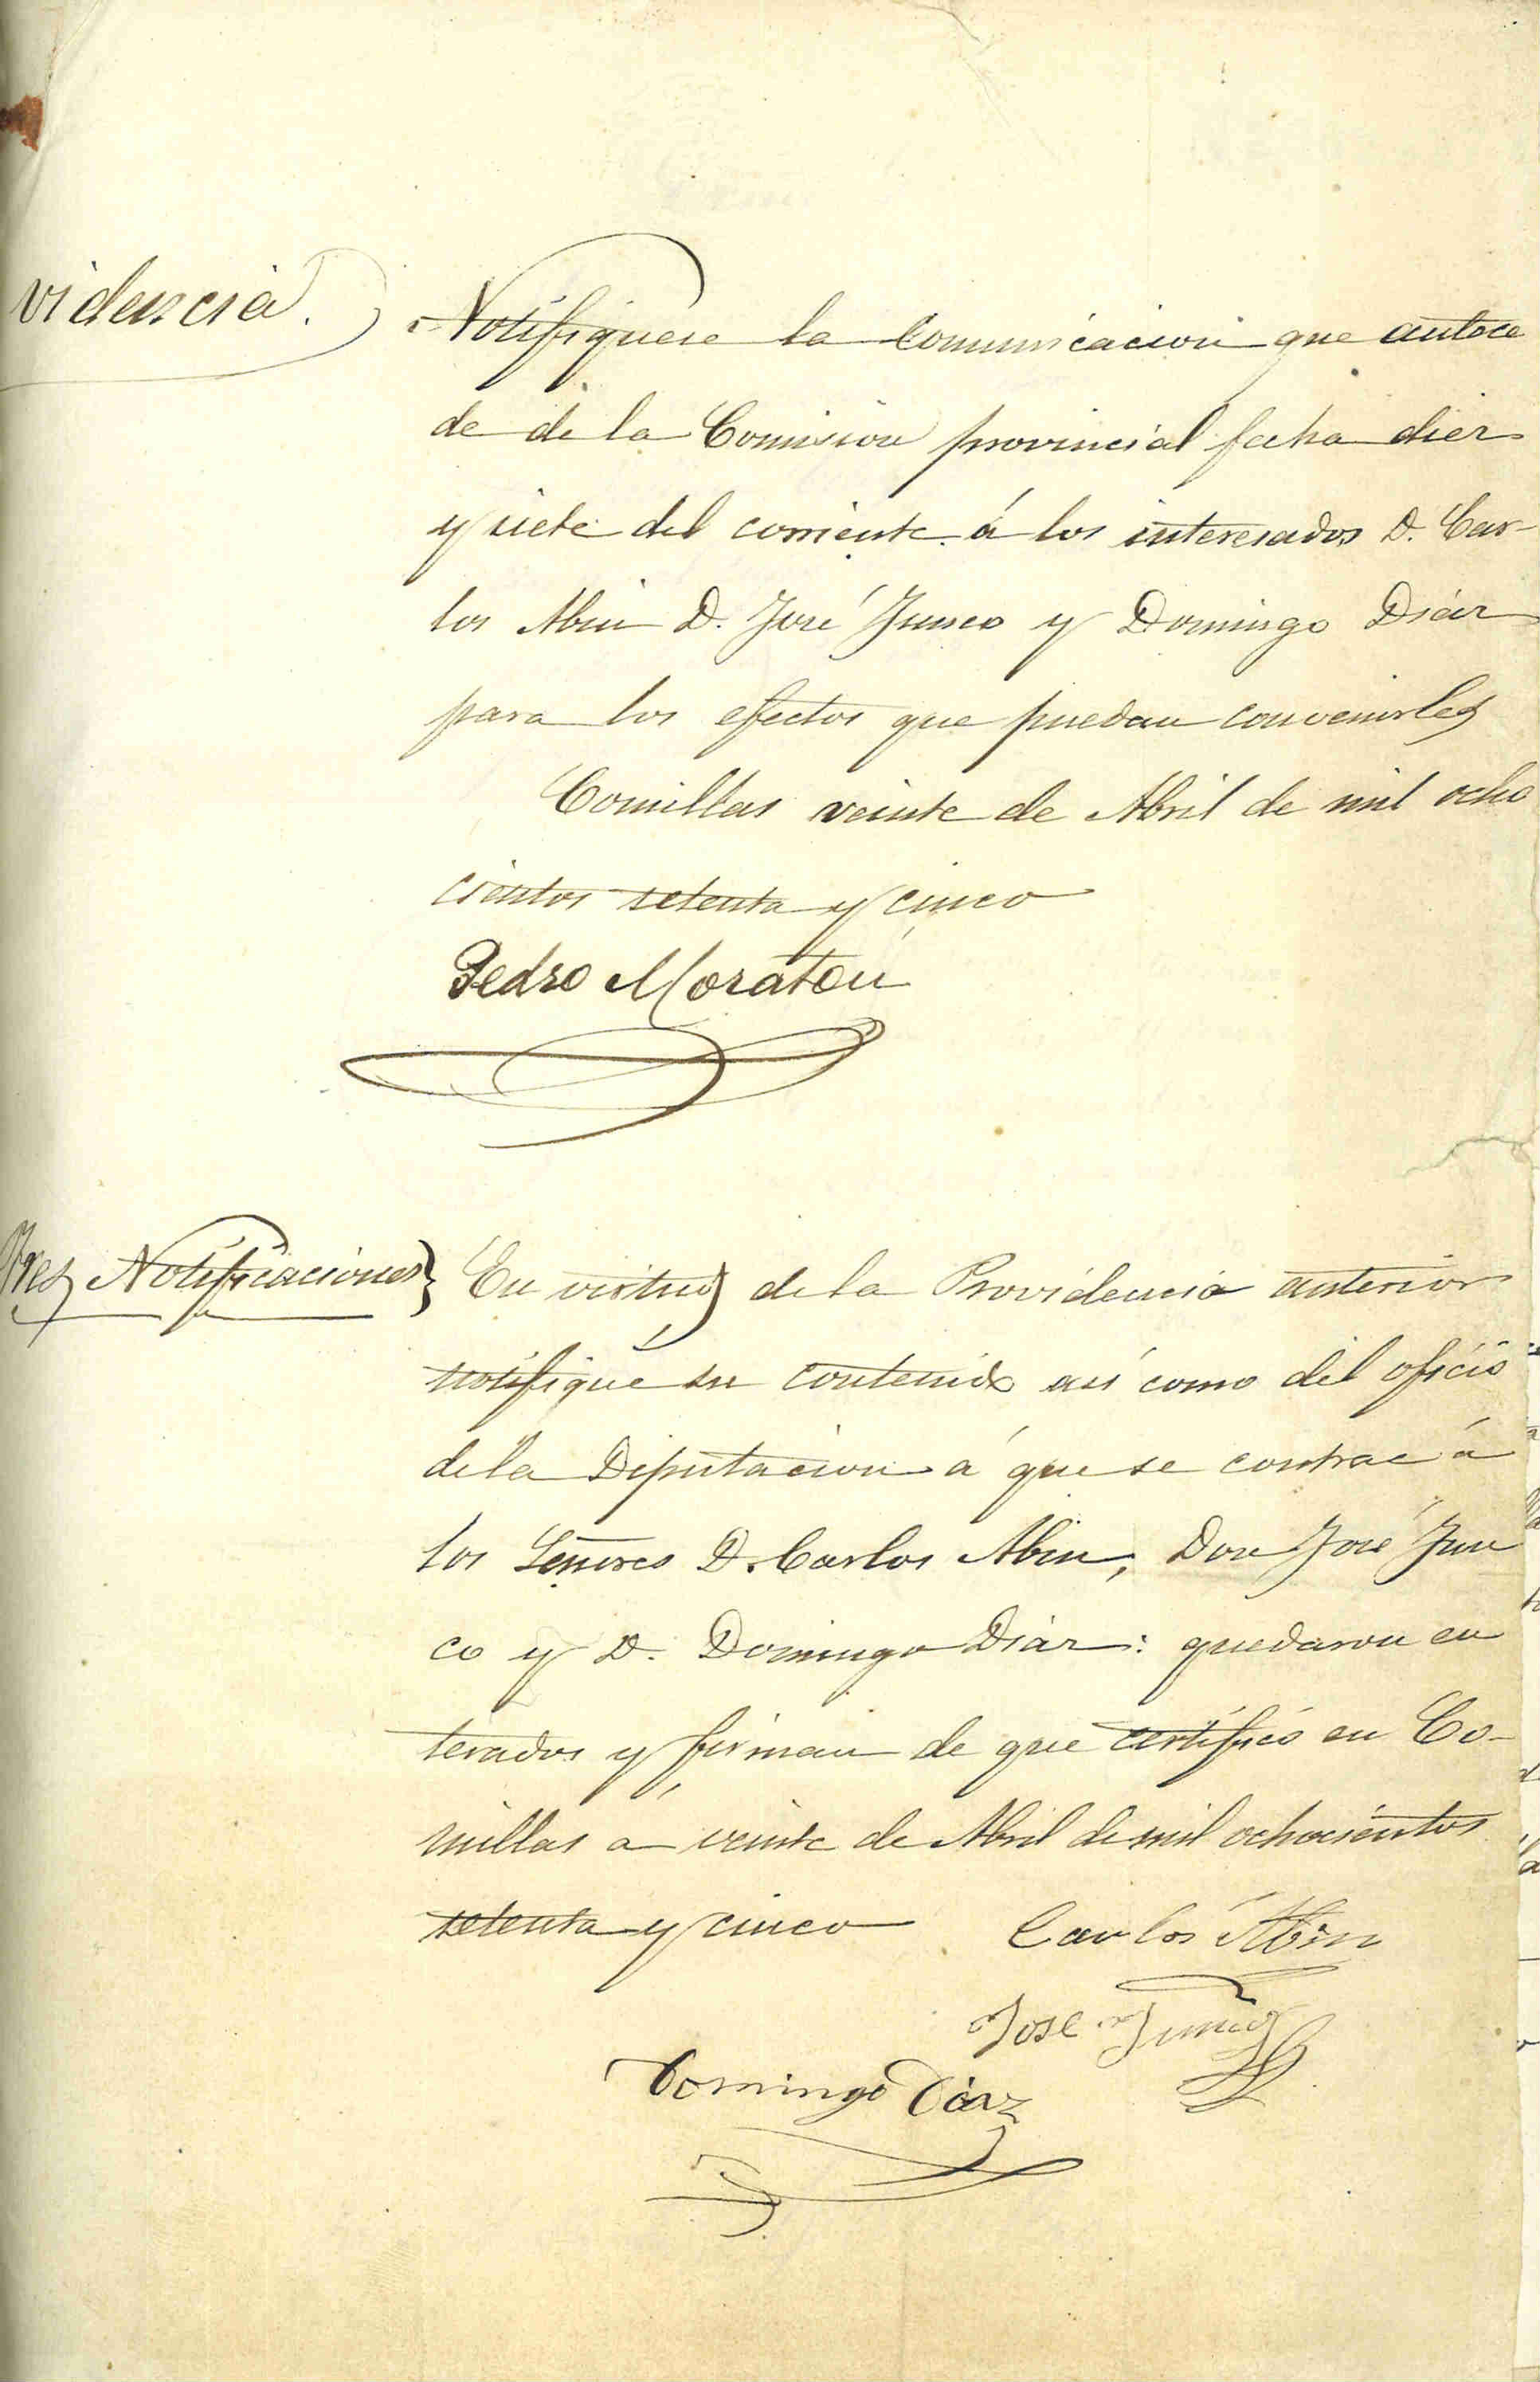 videncia.
Notifiquese la Comunicacion que antece
de de la Comision provincial fecha diez
y siete del corriente á los interesados D. Car-
los Abin D. José Junco y Domingo Diáz
para los efectos que puedan convenirles
Comillas veinte de Abril de mil ocho
cientos setenta y cinco
Pedro Moraton
Tres Notificaciones
En virtud de la Providencia anterior
notifiqué su contenido asi como del oficio
de la Diputacion á que se contrae á
los Señores D. Carlos Abin, Don José Jun
co y D. Domingo Diáz: quedaron en
terados y firman de que certifico en Co-
millas a veinte de Abril de mil ochocientos
setenta y cinco
Carlos Abin
Jose Junco
Domingo Diaz